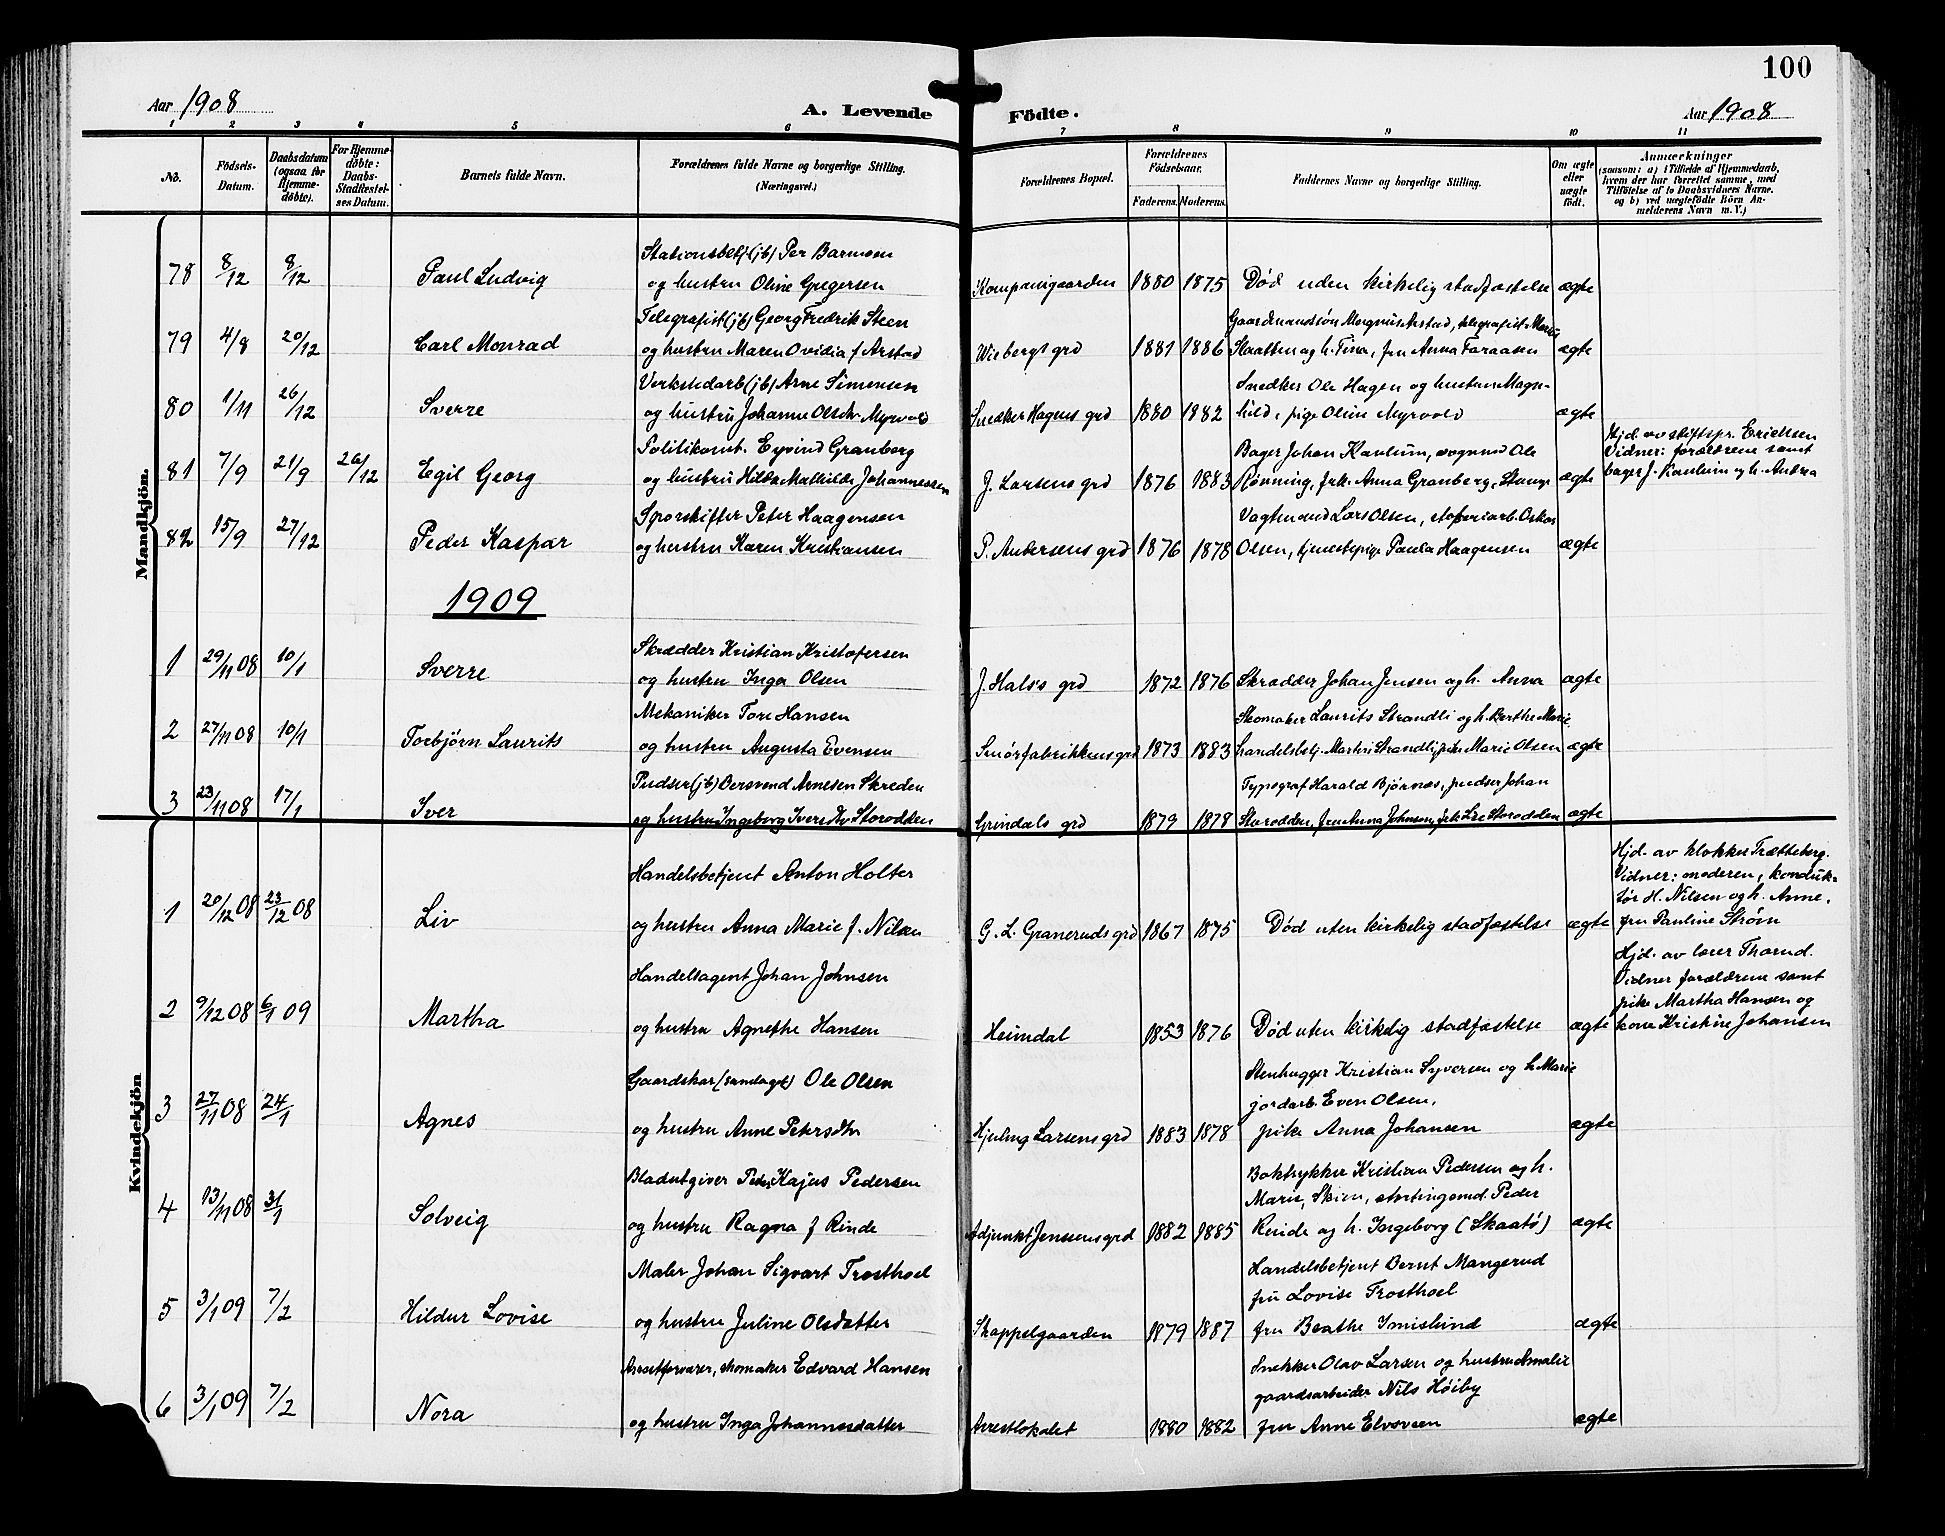 100
Aar 1908
A. Levende Födte.
Aar 1908
1 2 3 4 5 6 7 8 9 10 11
No.
Födsels-Datum.
Daabsdatum (ogsaa for Hjemme-döbte).
For Hjemme-döbte: Daabs-Stadfestel-ses Datum.
Barnets fulde Navn.
Forældrenes fulde Navne og borgerlige Stilling.
(Næringsvei.)
Forældrenes Bopæl.
Forældrenes Födselsaar.
Faderens. Moderens.
Faddernes Navne og borgerlige Stilling.
Om ægte eller uægte födt.
Anmærkninger
(saasom: a) i Tilfælde af Hjemmedaab,
hvem der har forrettet samme, med
Tilföielse af to Daabsvidners Navne.
og b) ved uægtefödte Börn An-
melderens Navn m. V.)
Mandkjön.
Stationsbetj. (jb) Per Barmoen
78 8/12 8/12 Paul Ludvig og hustru Oline Gregersen Kompanigaarden 1880 1875 Död uden kirkelig stadfæstelse ægte
Telegrafist (jb) Georg Fredrik Steen Gaardmandsön Magnus Arstad, telegrafist Marie
79 4/8 20/12 Carl Monrad og hustru Maren Ovidia f. Arstad Wibergs grd 1881 1886 Slaatten og h. Tina, frn Anna Faraasen ægte
Verkstedarb (jb) Arne Simensen Snedker Ole Hagen og hustru Magn-
80 1/11 26/12 Sverre og hustru Johanne Olsdtr. Myrvold Snedker Hagens grd 1880 1882 hild, pige Oline Myrvold ægte
Politikonst. Eyvind Granberg Bager Johan Kaulum, vognmd Ole Hjd. av stiftspr. Erichsen
81 7/9 21/9 26/12 Egil Georg og hustru Hilda Mathilde Johannessen J. Larsens grd 1876 1883 Rönning, frk. Anna Granberg, Stange ægte Vidner: forældrene samt
bager J. Kaulum og h. Andrea
Sporskifter Peter Haagensen Vagtmand Lars Olsen, stoperiarb. Oskar
82 15/9 27/12 Peder Kaspar og hustru Karen Kristiansen P. Andersens grd 1876 1878 Olsen, tjenestepige Paula Haagensen ægte
1909
Skrædder Kristian Kristofersen
1 29/11 08 10/1 Sverre og hustru Inga Olsen J. Hals's grd 1872 1876 Skrædder Johan Jensen og h. Anna ægte
Mekaniker Tore Hansen Skomaker Laurits Strandli og h. Berthe Marie
2 27/11 08 10/1 Torbjörn Laurits og hustru Augusta Evensen Smörfabrikkens grd 1873 1883 handelsbetj. Martin Strandli, frk. Marie Olsen ægte
Pudser (jb) Bersvend Arnesen Skreden Typograf Harald Bjørnæs, pudser Johan
3 23/11 08 17/1 Iver og hustru Ingeborg Iversdtr Storodden Grindals grd 1879 1878 Storodden, fru Anna Johnsen, frk. Lise Storodden ægte
Kvindekjön
Handelsbetjent Anton Holter Hjd. av klokker Trætteberg.
Vidner: moderen, konduk-
tör H. Nilsen og h. Anne,
1 20/12 08 23/12 08 Liv og hustru Anna Marie f. Nilsen G. L. Graneruds grd 1867 1875 Död uten kirkelig stadfæstelse ægte fru Pauline Ström
Handelsagent Johan Johnsen Hjd. av lærer Thorud.
Vidner forældrene samt
pike Martha Hansen og
2 9/12 08 6/1 09 Martha og hustru Agnethe Hansen Heimdal 1853 1876 Död uten kirkelig stadfæstelse ægte kone Kristine Johansen
Gaardskar (søndagst) Ole Olsen Stenhugger Kristian Syversen og h. Marie
jordarb. Even Olsen,
3 27/11 08 24/1 Agnes og hustru Anne Petersdtr Hjerling Larsens grd 1883 1878 pike Anna Johansen ægte
Bladutgiver Peder Kajus Pedersen Boktrykker Kristian Pedersen og h.
Marie, Skien, stortingsmd. Peder
4 13/11 08 31/1 Solveig og hustru Ragna f Rinde Adjunkt Jenssens grd 1882 1885 Rinde og h. Ingeborg (Skaatö) ægte
Maler Johan Sigvart Trosthoel Handelsbetjent Bernt Mangerud
fru Lovise Trosthoel
5 3/1 09 7/2 Hildur Lovise og hustru Juline Olsdatter Skappelgaarden 1879 1887 fru Beathe Imislund ægte
Arrestforvarer, skomaker Edvard Hansen Snekker Olav Larsen og hustru Amalie
gaardsarbeider Nils Höiby
6 3/1 09 7/2 Nora og hustru Inga Johannesdatter Arrestlokalet 1880 1882 fru Anne Elvsveen ægte